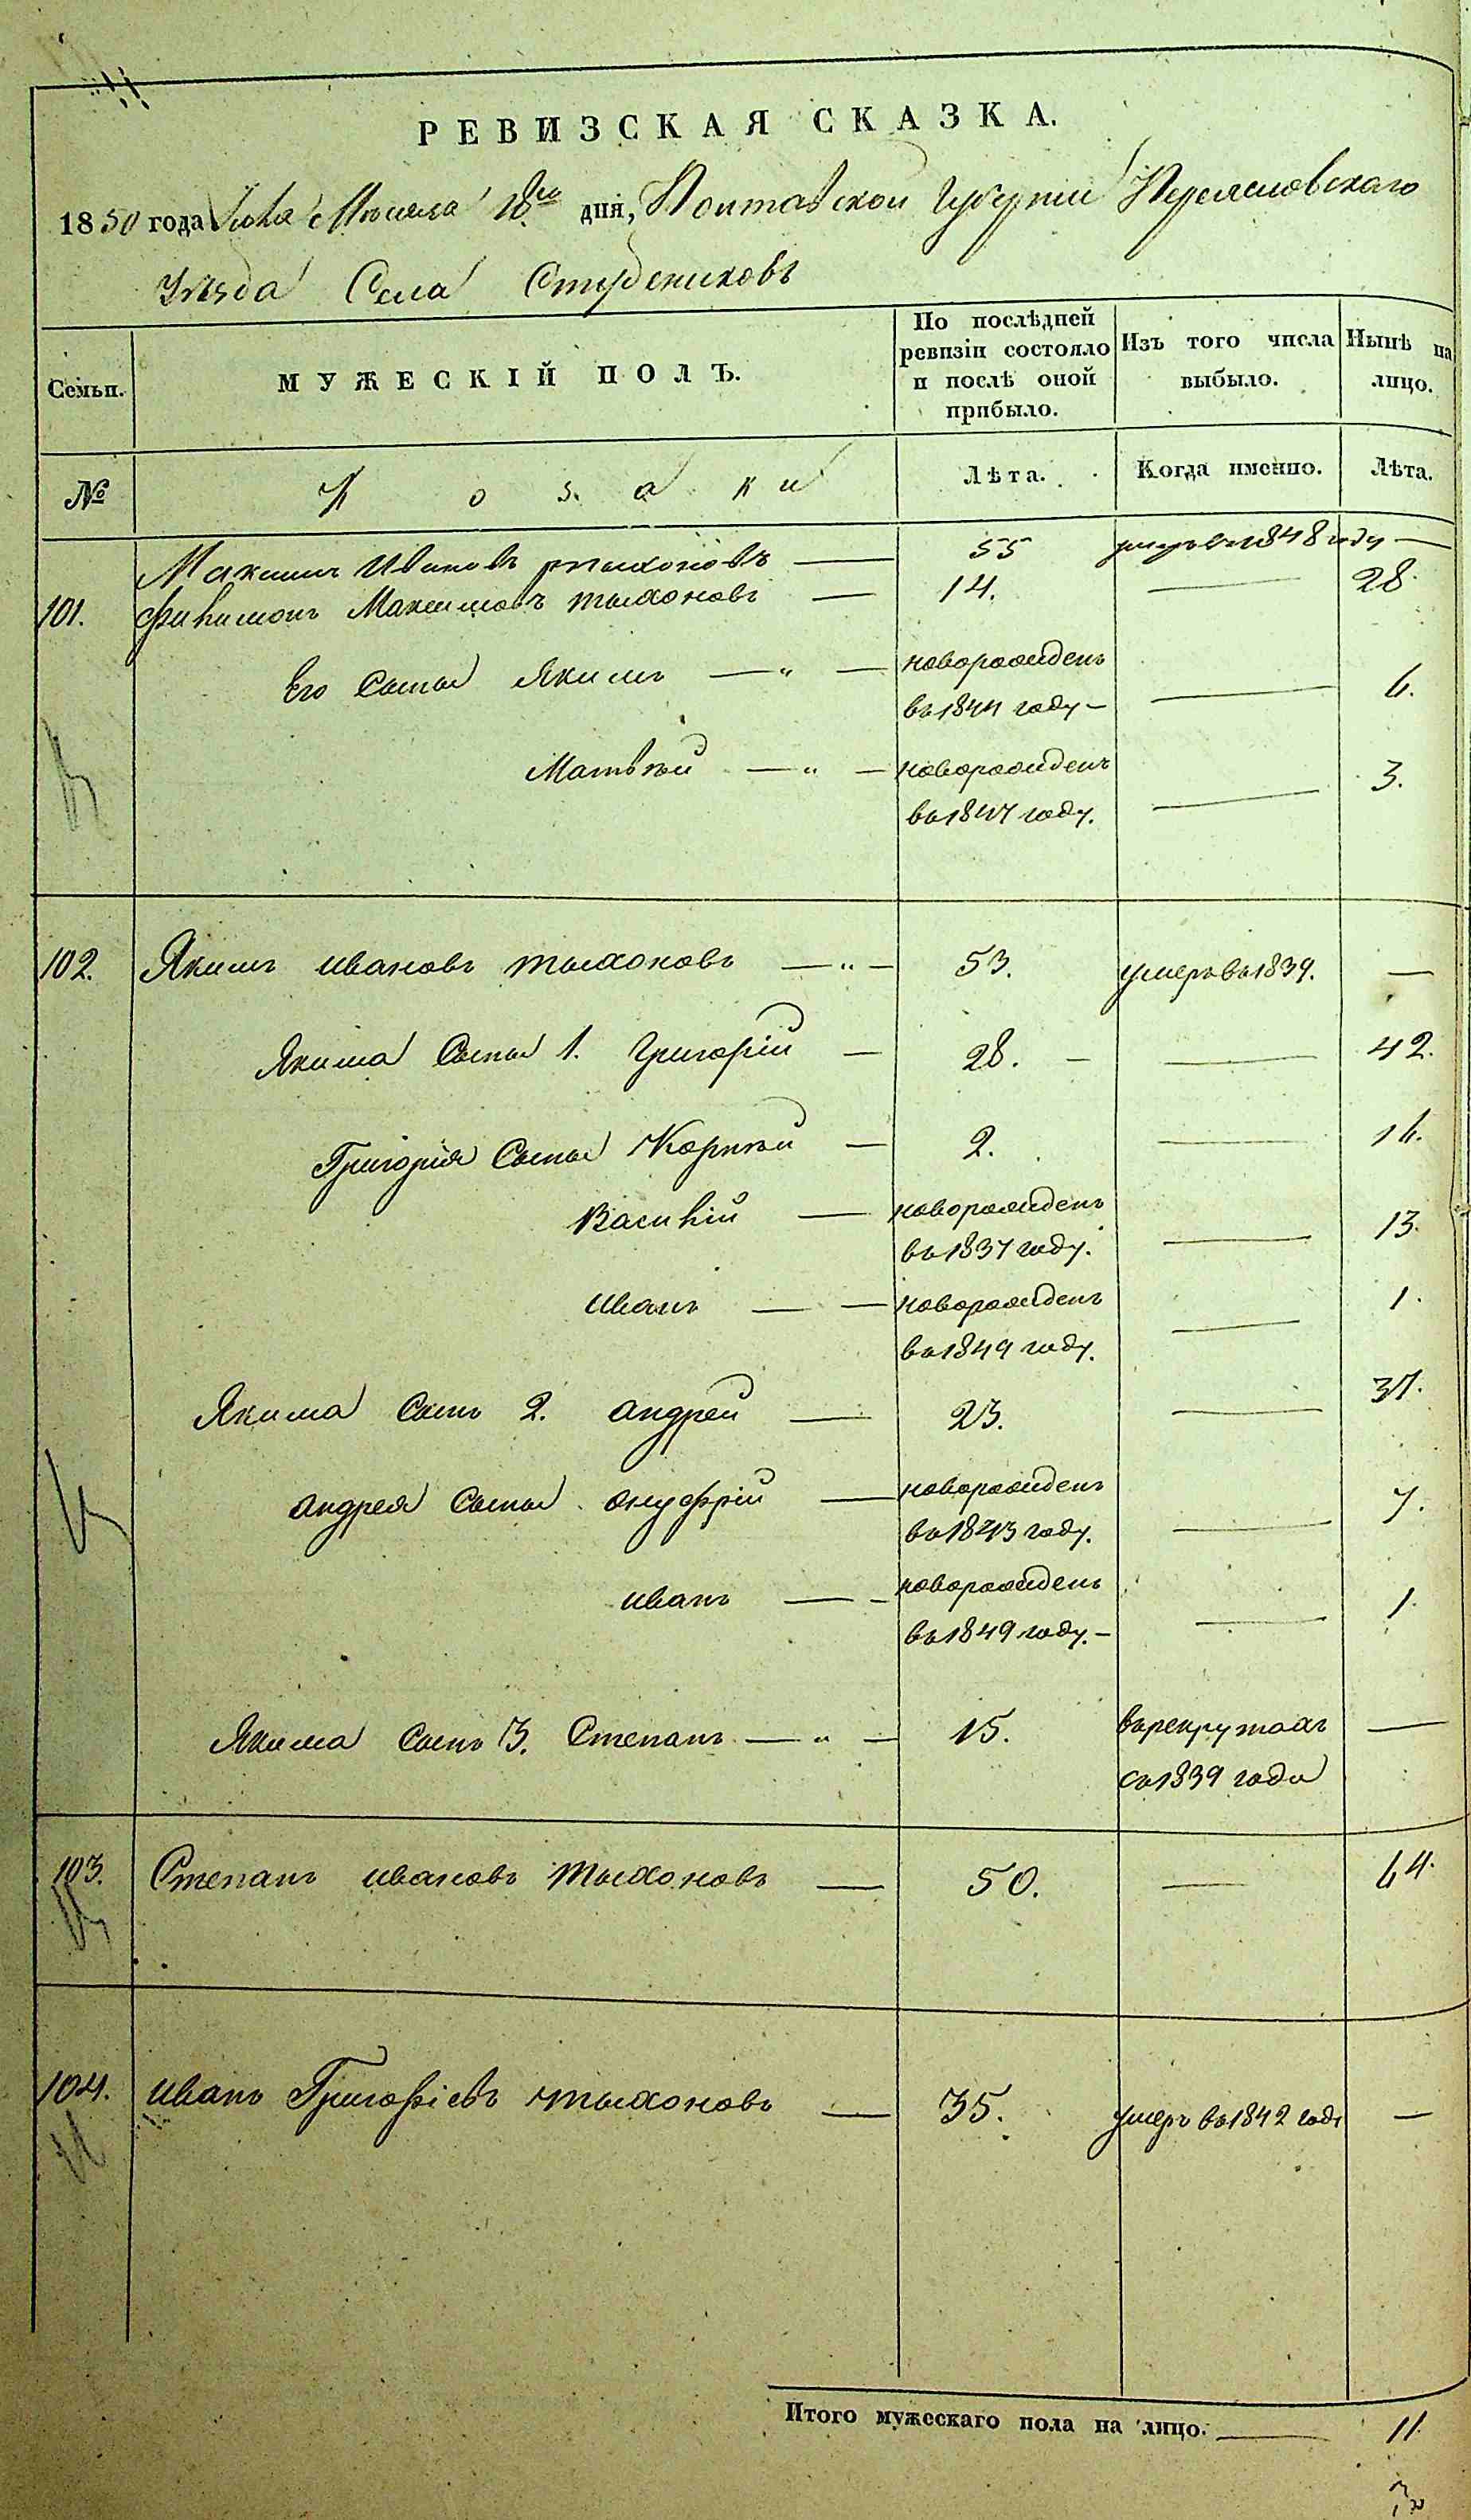 РЕВИЗСКАЯ СКАЗКА.
1850 года Іюля Мѣсяца 18го дня, Полтавской Губерніи Переяславскаго
Уѣзда Села Студениковъ
Семьи.
МУЖЕСКІЙ ПОЛЪ.
По послѣдней ревизіи состояло и послѣ оной прибыло.
Изъ того числа выбыло.
Нынѣ на лицо.
№ Козаки Лѣта. Когда именно. Лѣта.
Максимъ Ивановъ тыхоновъ — 55 умеръ въ 1848 году —
101. Филимонъ Максимовъ тыхоновъ — 14. — 28.
Его Сыны Якимъ — " — новорожденъ — 6.
въ 1844 году —
Матвѣй — " — новорожденъ — 3.
въ 1847 году.
102. Якимъ ивановъ тыхоновъ — " — 53. умеръ въ 1839. —
Якима Сыны 1. Григорій — 28. — — 42.
Григорія Сыны Корнѣй — 2. — 16.
Василій — новорожденъ — 13.
въ 1837 году.
иванъ — — новорожденъ — 1.
въ 1849 году.
Якима Сынъ 2. андрей — 23. — 37.
андрея Сыны онуфрій — новорожденъ — 7.
въ 1843 году.
иванъ — новорожденъ — 1.
въ 1849 году. —
Якима Сынъ 3. Степанъ — " — 15. въ рекрутахъ —
съ 1839 года
103. Степанъ ивановъ тыхоновъ — 50. — 64.
104. иванъ Григорієвъ тыхоновъ — 35. умеръ въ 1842 году —
Итого мужескаго пола на лицо. — 11.